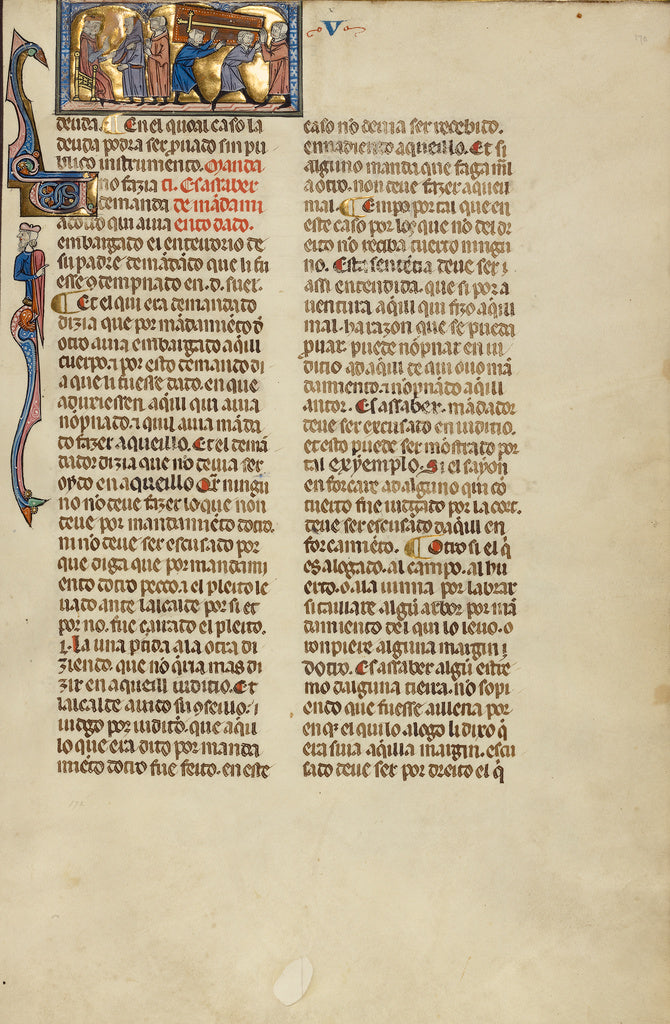 V
170
deuda. ¶ En el quoal caso la
deuda podra ser puado sin pu
blico instrumento. Manda
no fazia ti. Es assaber
demanda de mādami
acotro qui auia ento dado.
embargado el enterrorio de
su padre demādādo que li fu
esse ꝯtempnado en .d. suel.
¶ Et el qui era demandado
dizia que por mādamiēto d̄
otro auia embargado aq̄lli
cuerpo. ⁊ por esto demando di
a que li fuesse dado. en que
aduziessen aq̄lli qui auia
nōpnado. ⁊ quil auia māda
do fazer aqueillo. Et el demā
dador dizia que nō deuia ser
oydo en aqueillo. Q̄r ningū
no nō deue fazer lo que non
deue por mandamiēto dotro.
ni nō deue ser escusado por
que diga que por mandami
ento dotro pecco. ⁊ el pleito le
uado ante lalcalde por si et
por no. fue çarrado el pleito.
⁊. La una ptida a la otra di
ziendo. que nō q̄ria mas di
zir en aqueill iuditio. Et
lalcalde auido su ꝯseillo. ⁊
iudgo por iuditō. que aq̄u
lo que era dito por manda
miēto dotro fue feito. en este
caso nō deuia ser recebido.
ennadiendo aqueillo. Et si
alguno manda que faga mal
a otro. non deue fazer aqueil
mal. ¶ Empo por tal que en
este caso por los que nō del dr
eito nō reciba tuerto ningu
no. Esta sentētia deue ser ⁊
assi entendida. que si por a
uentura aq̄lli qui fizo aq̄lli
mal. ha razon que se pueda
puar. puede nōpnar en iu
ditio ad aq̄lli de qui ouo mā
damiento. ⁊ nōpnādo aq̄lli
auctor. Es assaber. mādador
deue ser excusado en iuditio.
et esto puede ser mōstrado por
tal exyemplo. Si el sayōn
en forcare ad alguno qui cō
tuerto fue iudgado por la cort.
deue ser escusado daq̄lli en
forcamiēto. ¶ Otro si el q̄
es alogado. al campo. al hu
erto. o a la uinna por labrar
si taillare algū arbor por mā
damiento del qui lo leuo. o
ronpiere alguna margin ⁊
dotro. Es assaber algū estre
mo dalguna tierra. nō sopi
endo que fuesse aillena por
en q̄ el qui lo alogo li dixo q̄
era suia aq̄illa margin. escu
sado deue ser por dreito el q̄